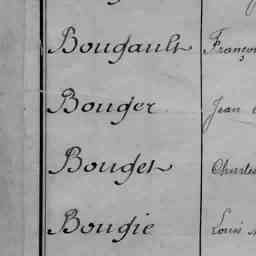 Bougault Franço
Bouger Jean
Bouget Charles
Bougie Louis